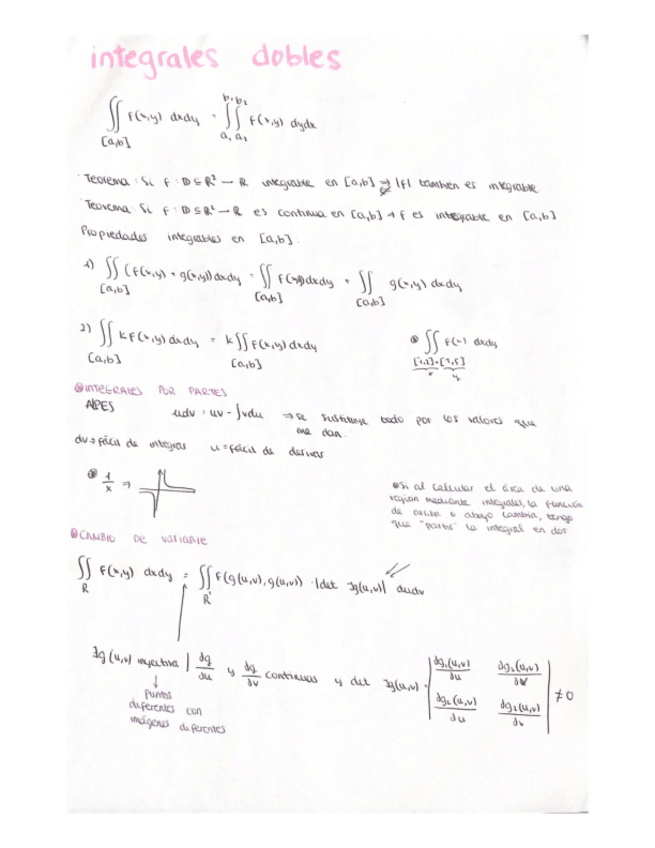 integrales dobles
∬ f(x,y) dxdy = ∬ f(x,y) dydx
[a,b] a₁ a₂ b₁ b₂
Teorema: Si f: D ⊆ R² → R integrable en [a,b] ⇒ |f| tambien es integrable
Teorema: Si f: D ⊆ R² → R es continua en [a,b] → f es integrable en [a,b]
Propiedades integrables en [a,b].
1) ∬ (f(x,y) + g(x,y)) dxdy = ∬ f(x,y) dxdy + ∬ g(x,y) dxdy
[a,b] [a,b] [a,b]
2) ∬ k f(x,y) dxdy = k ∬ f(x,y) dxdy
[a,b] [a,b]
∬ f( ) dxdy
x y
INTEGRALES POR PARTES
ALPES
udv = uv - ∫vdu ⇒ se sustituye todo por los valores que
me dan.
dv → fácil de integrar u = fácil de derivar
1/x ⇒
Si al calcular el área de una
región mediante integrales, la función
de arriba o abajo cambia, tengo
que "partir" la integral en dos
CAMBIO DE VARIABLE
∬ f(x,y) dxdy = ∬ f(g(u,v), g(u,v)) · |det Jg(u,v)| dudv
R R'
Jg(u,v) inyectiva | dg/du y dg/dv continuas y det Jg(u,v) = | dg₁(u,v)/du dg₁(u,v)/dv |
| dg₂(u,v)/du dg₂(u,v)/dv | ≠ 0
↓
puntos
diferentes con
imágenes diferentes